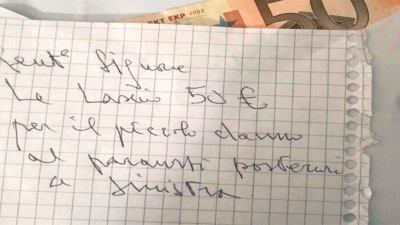 EKT EKP 2002
50
Gent^e Signore
Le Lascio 50 €
per il piccolo danno
al paraurti posteriori
a sinistra